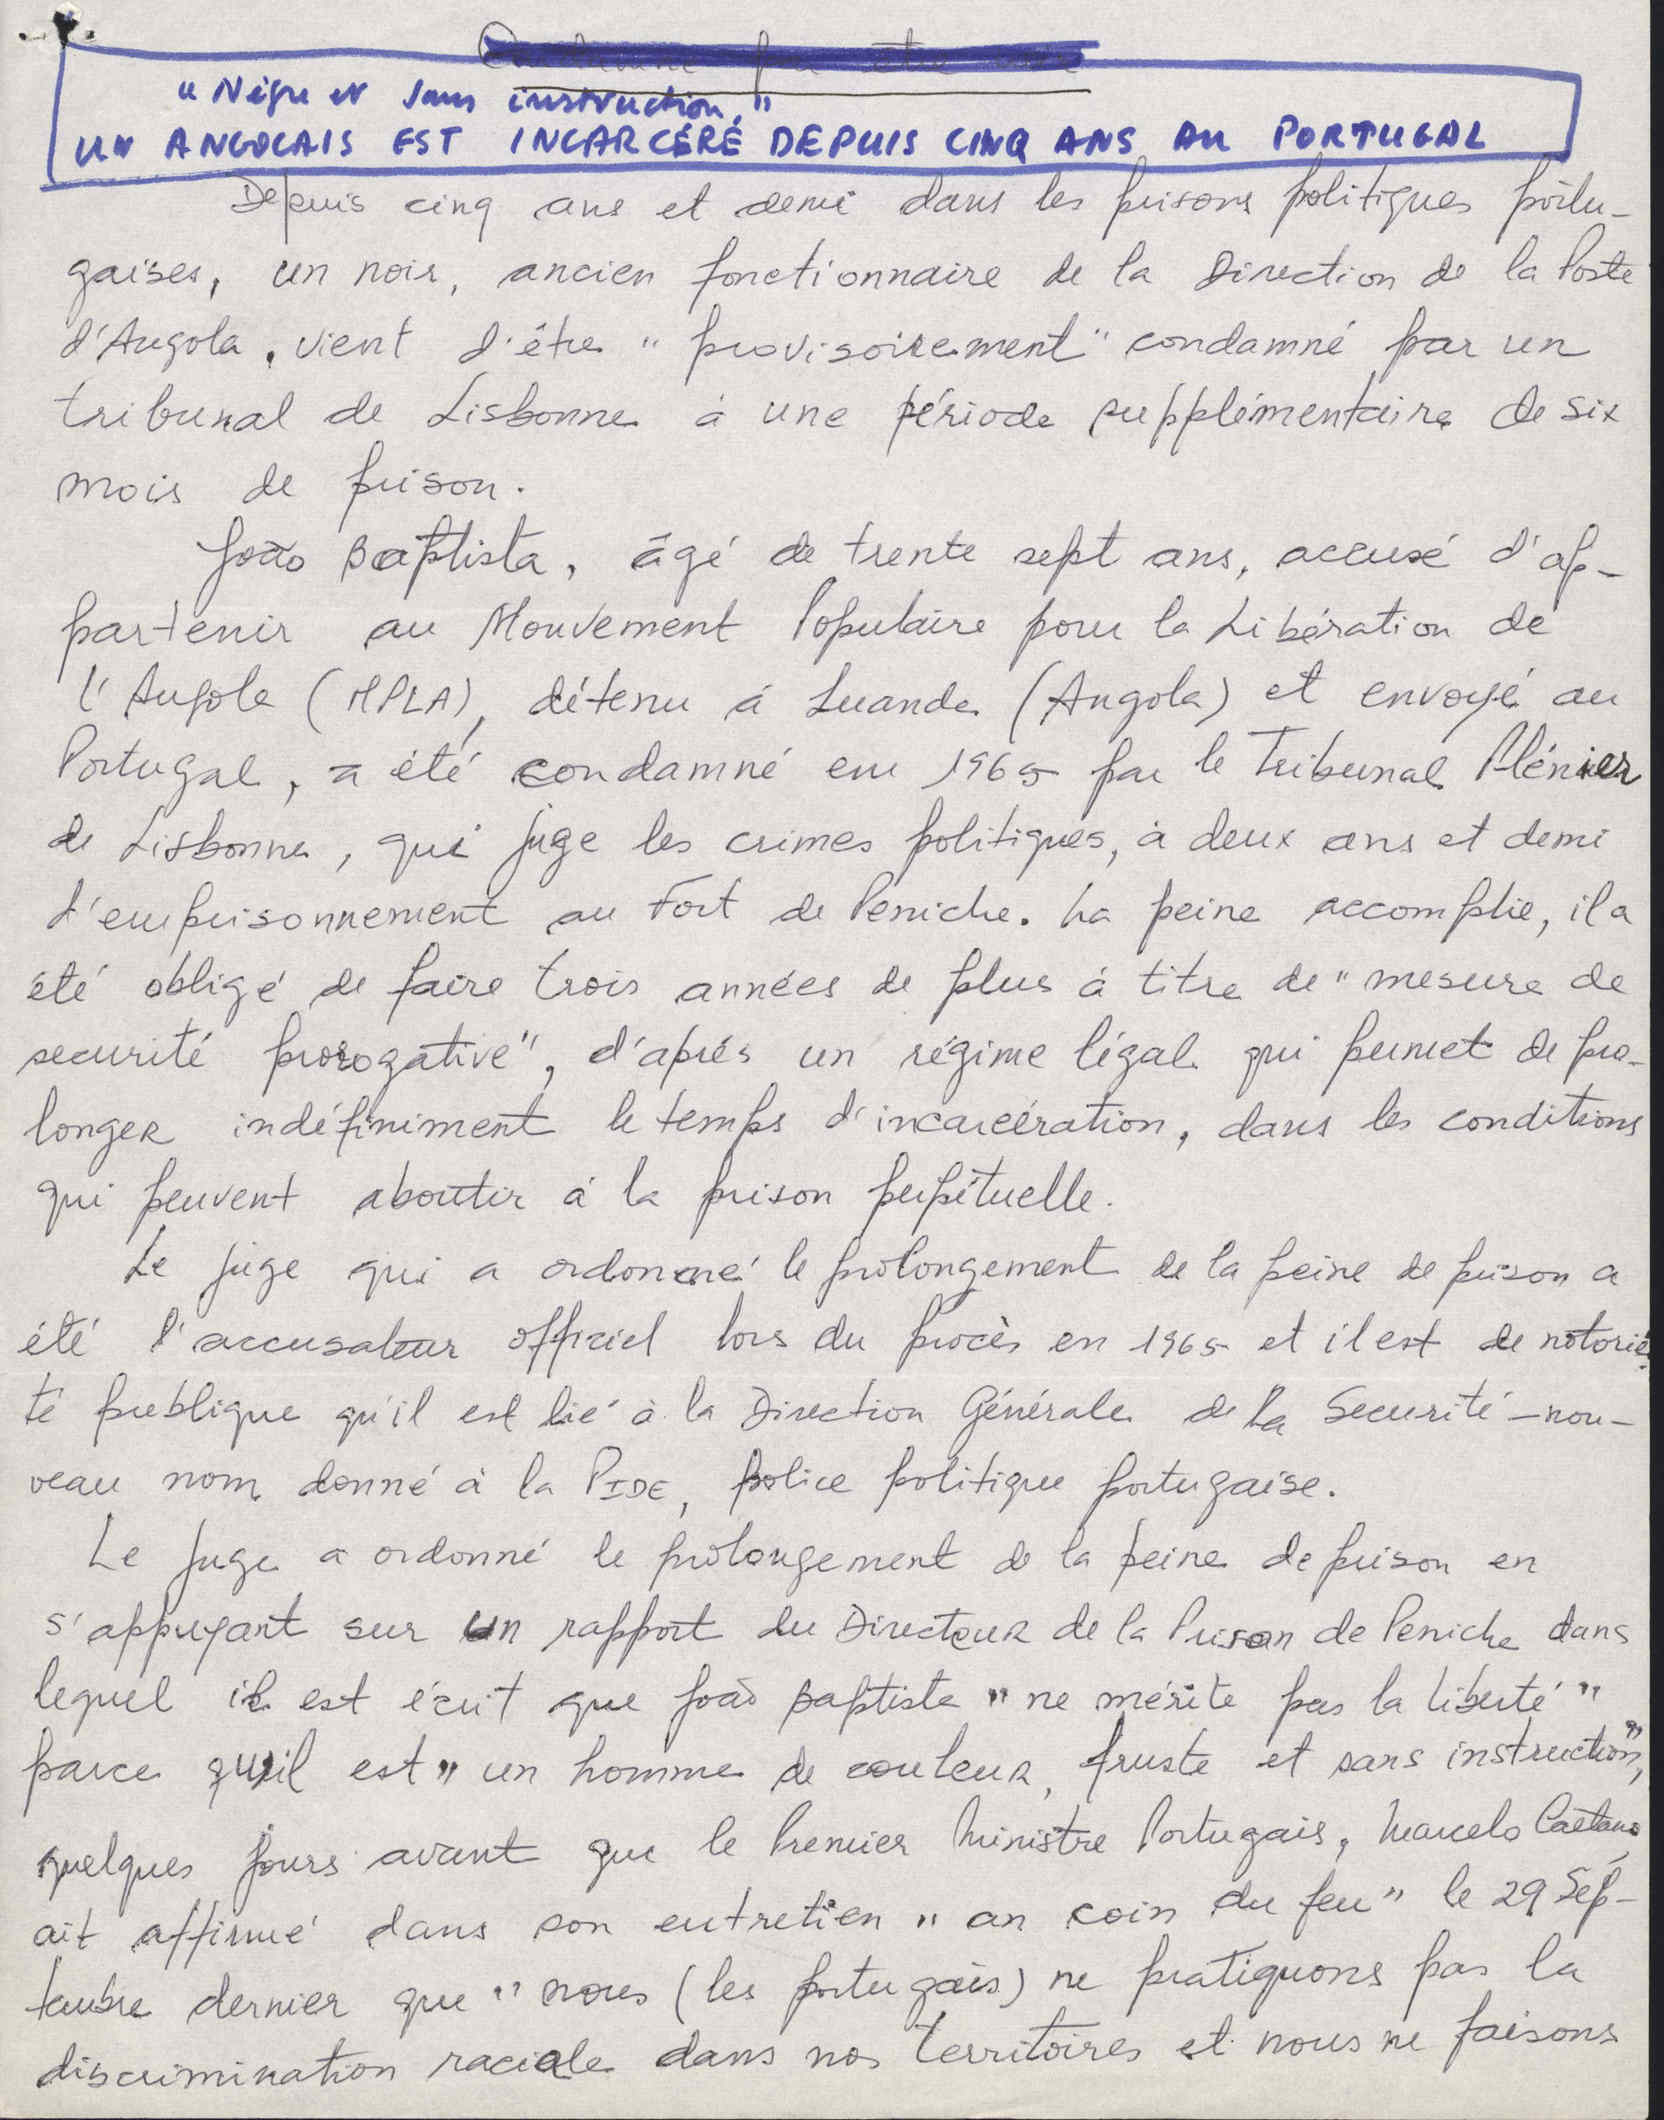 "Nègre et sans instruction,"
UN ANGOLAIS EST INCARCÉRÉ DEPUIS CINQ ANS AU PORTUGAL
Depuis cinq ans et demi dans les prisons politiques portu-
gaises, un noir, ancien fonctionnaire de la Direction de la Poste
d'Angola, vient d'être "provisoirement" condamné par un
tribunal de Lisbonne à une période supplémentaire de six
mois de prison.
João Baptista, âgé de trente sept ans, accusé d'ap-
partenir au Mouvement Populaire pour la Libération de
l'Angola (MPLA), détenu à Luanda (Angola) et envoyé au
Portugal, a été condamné en 1965 par le Tribunal Plénier
de Lisbonne, qui juge les crimes politiques, à deux ans et demi
d'emprisonnement au Fort de Peniche. La peine accomplie, il a
été obligé de faire trois années de plus à titre de "mesure de
securité prorogative", d'après un régime légal qui permet de pro-
longer indéfiniment le temps d'incarcération, dans les conditions
qui peuvent aboutir à la prison perpétuelle.
Le juge qui a ordonné le prolongement de la peine de prison a
été l'accusateur officiel lors du procès en 1965 et il est de notorié-
té publique qu'il est lié à la Direction Générale de la Securité - nou-
veau nom donné à la PIDE, police politique portugaise.
Le juge a ordonné le prolongement de la peine de prison en
s'appuyant sur un rapport du Directeur de la Prison de Peniche dans
lequel il est écrit que João Baptista "ne mérite pas la liberté"
parce qu'il est "un homme de couleur, fruste et sans instruction",
quelques jours avant que le Premier Ministre Portugais, Marcelo Caetano
ait affirmé dans son entretien "au coin du feu" le 29 Sep-
tembre dernier que "nous (les portugais) ne pratiquons pas la
discrimination raciale dans nos territoires et nous ne faisons